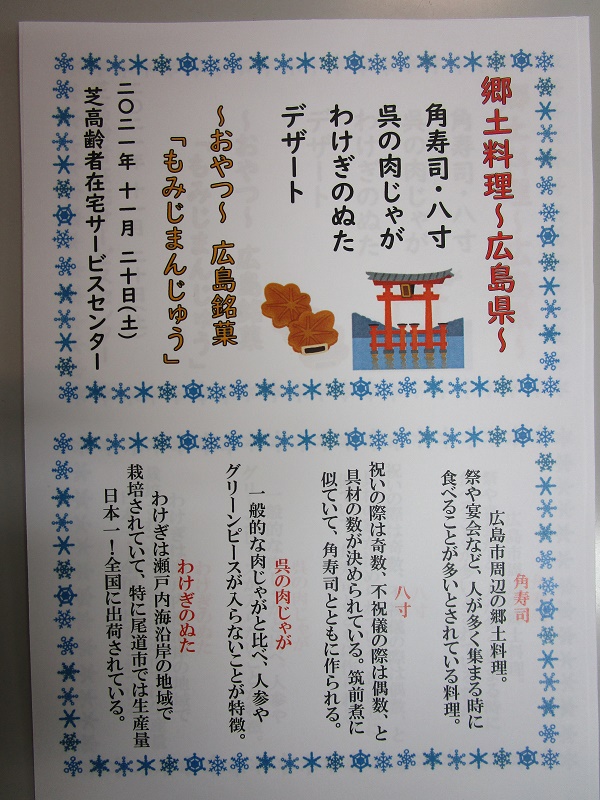 郷土料理～広島県～
角寿司・八寸
呉の肉じゃが
わけぎのぬた
デザート
～おやつ～ 広島銘菓
「もみじまんじゅう」
二〇二一年 十一月 二十日(土)
芝高齢者在宅サービスセンター
角寿司
広島市周辺の郷土料理。
祭や宴会など、人が多く集まる時に
食べることが多いとされている料理。
八寸
祝いの際は奇数、不祝儀の際は偶数、と
具材の数が決められている。筑前煮に
似ていて、角寿司とともに作られる。
呉の肉じゃが
一般的な肉じゃがと比べ、人参や
グリーンピースが入らないことが特徴。
わけぎのぬた
わけぎは瀬戸内海沿岸の地域で
栽培されていて、特に尾道市では生産量
日本一！全国に出荷されている。